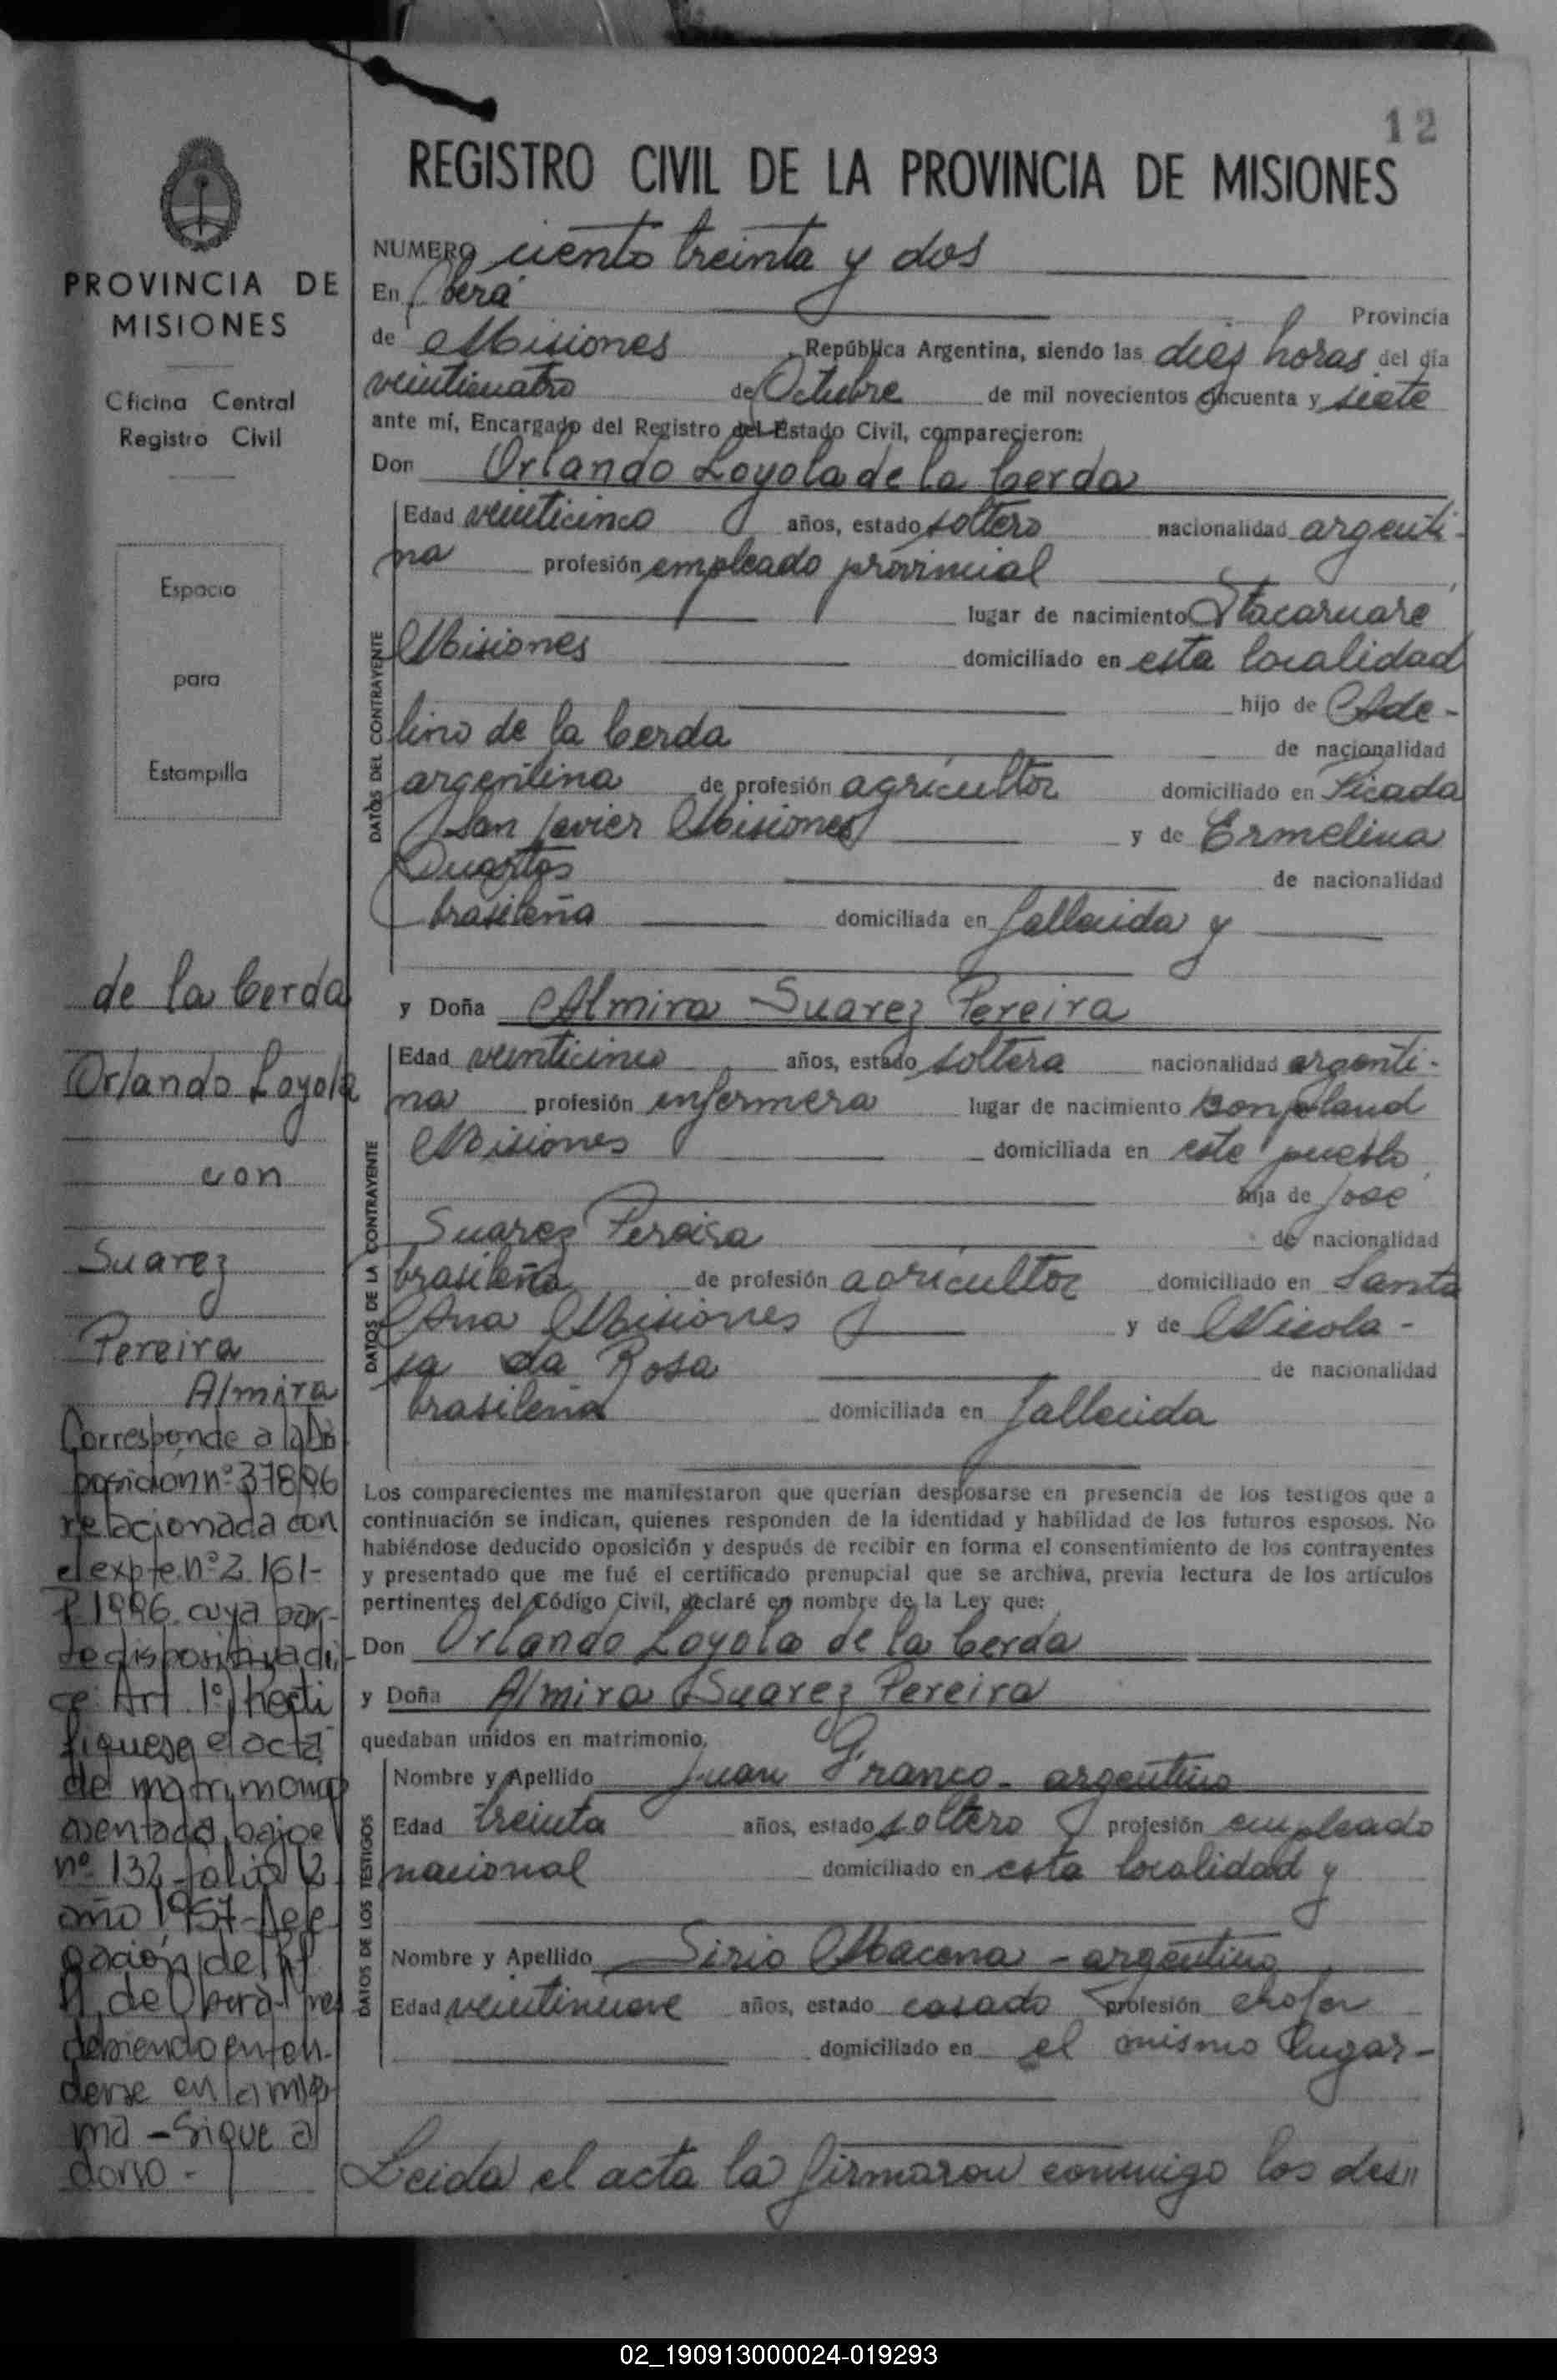 12
REGISTRO CIVIL DE LA PROVINCIA DE MISIONES
PROVINCIA DE
MISIONES
Oficina Central
Registro Civil
Espacio
para
Estampilla
de la Cerda
Orlando Loyola
con
Suarez
Pereira
Almira
Corresponde a la Dis
posición nº 378/96
relacionada con
el expte nº 2161-
P 1996 cuya par-
te dispositiva di-
ce Art 1º) Recti
fiquese el acta
de matrimonio
asentada bajo el
nº 132 folio 12
año 1957 - Dele
gación del R.P.
de Oberá
debiendo enten-
derse en la mis
ma - Sigue al
dorso -
NUMERO ciento treinta y dos
En Oberá Provincia
de Misiones, República Argentina, siendo las diez horas del día
veinticuatro de Octubre de mil novecientos cincuenta y siete
ante mí, Encargado del Registro del Estado Civil, comparecieron:
Don Orlando Loyola de la Cerda
DATOS DEL CONTRAYENTE
Edad veinticinco años, estado soltero nacionalidad argenti-
na profesión empleado provincial
lugar de nacimiento Itacaruaré
Misiones domiciliado en esta localidad
hijo de Ade-
lino de la Cerda de nacionalidad
argentina de profesión agricultor domiciliado en Picada
San Javier Misiones y de Ermelina
Duartes de nacionalidad
brasileña domiciliada en fallecida y
y Doña Almira Suarez Pereira
DATOS DE LA CONTRAYENTE
Edad veinticinco años, estado soltera nacionalidad argenti-
na profesión enfermera lugar de nacimiento Bonpland
Misiones domiciliada en este pueblo
hija de José
Suarez Pereira de nacionalidad
brasileña de profesión agricultor domiciliado en Santa
Ana Misiones y de Nicola-
sa da Rosa de nacionalidad
brasilena domiciliada en fallecida
Los comparecientes me manifestaron que querían desposarse en presencia de los testigos que a
continuación se indican, quienes responden de la identidad y habilidad de los futuros esposos. No
habiéndose deducido oposición y después de recibir en forma el consentimiento de los contrayentes
y presentado que me fué el certificado prenupcial que se archiva, previa lectura de los artículos
pertinentes del Código Civil, declaré en nombre de la Ley que:
Don Orlando Loyola de la Cerda
y Doña Almira Suarez Pereira
quedaban unidos en matrimonio.
DATOS DE LOS TESTIGOS
Nombre y Apellido Juan Franco - argentino
Edad treinta años, estado soltero profesión empleado
nacional domiciliado en esta localidad y
Nombre y Apellido Sirio Macena - argentino
Edad veintinueve años, estado casado profesión chofer
domiciliado en el mismo lugar -
Leida el acta la firmaron conmigo los des"
02_190913000024-019293